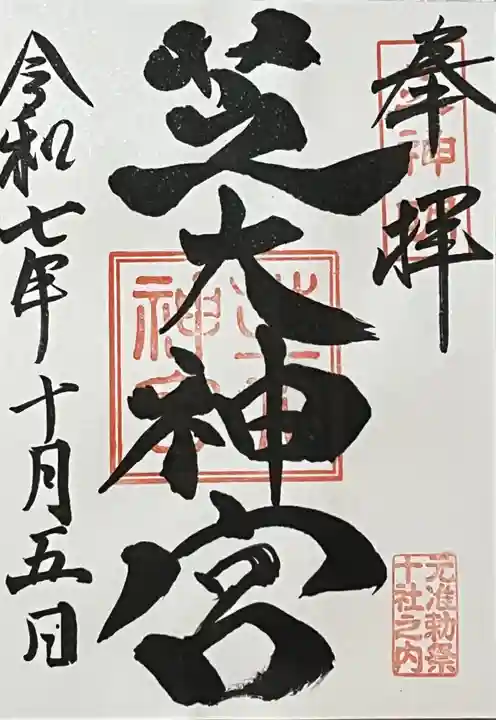 奉拝
芝大神宮
令和七年十月五日
元准勅祭
十社之内